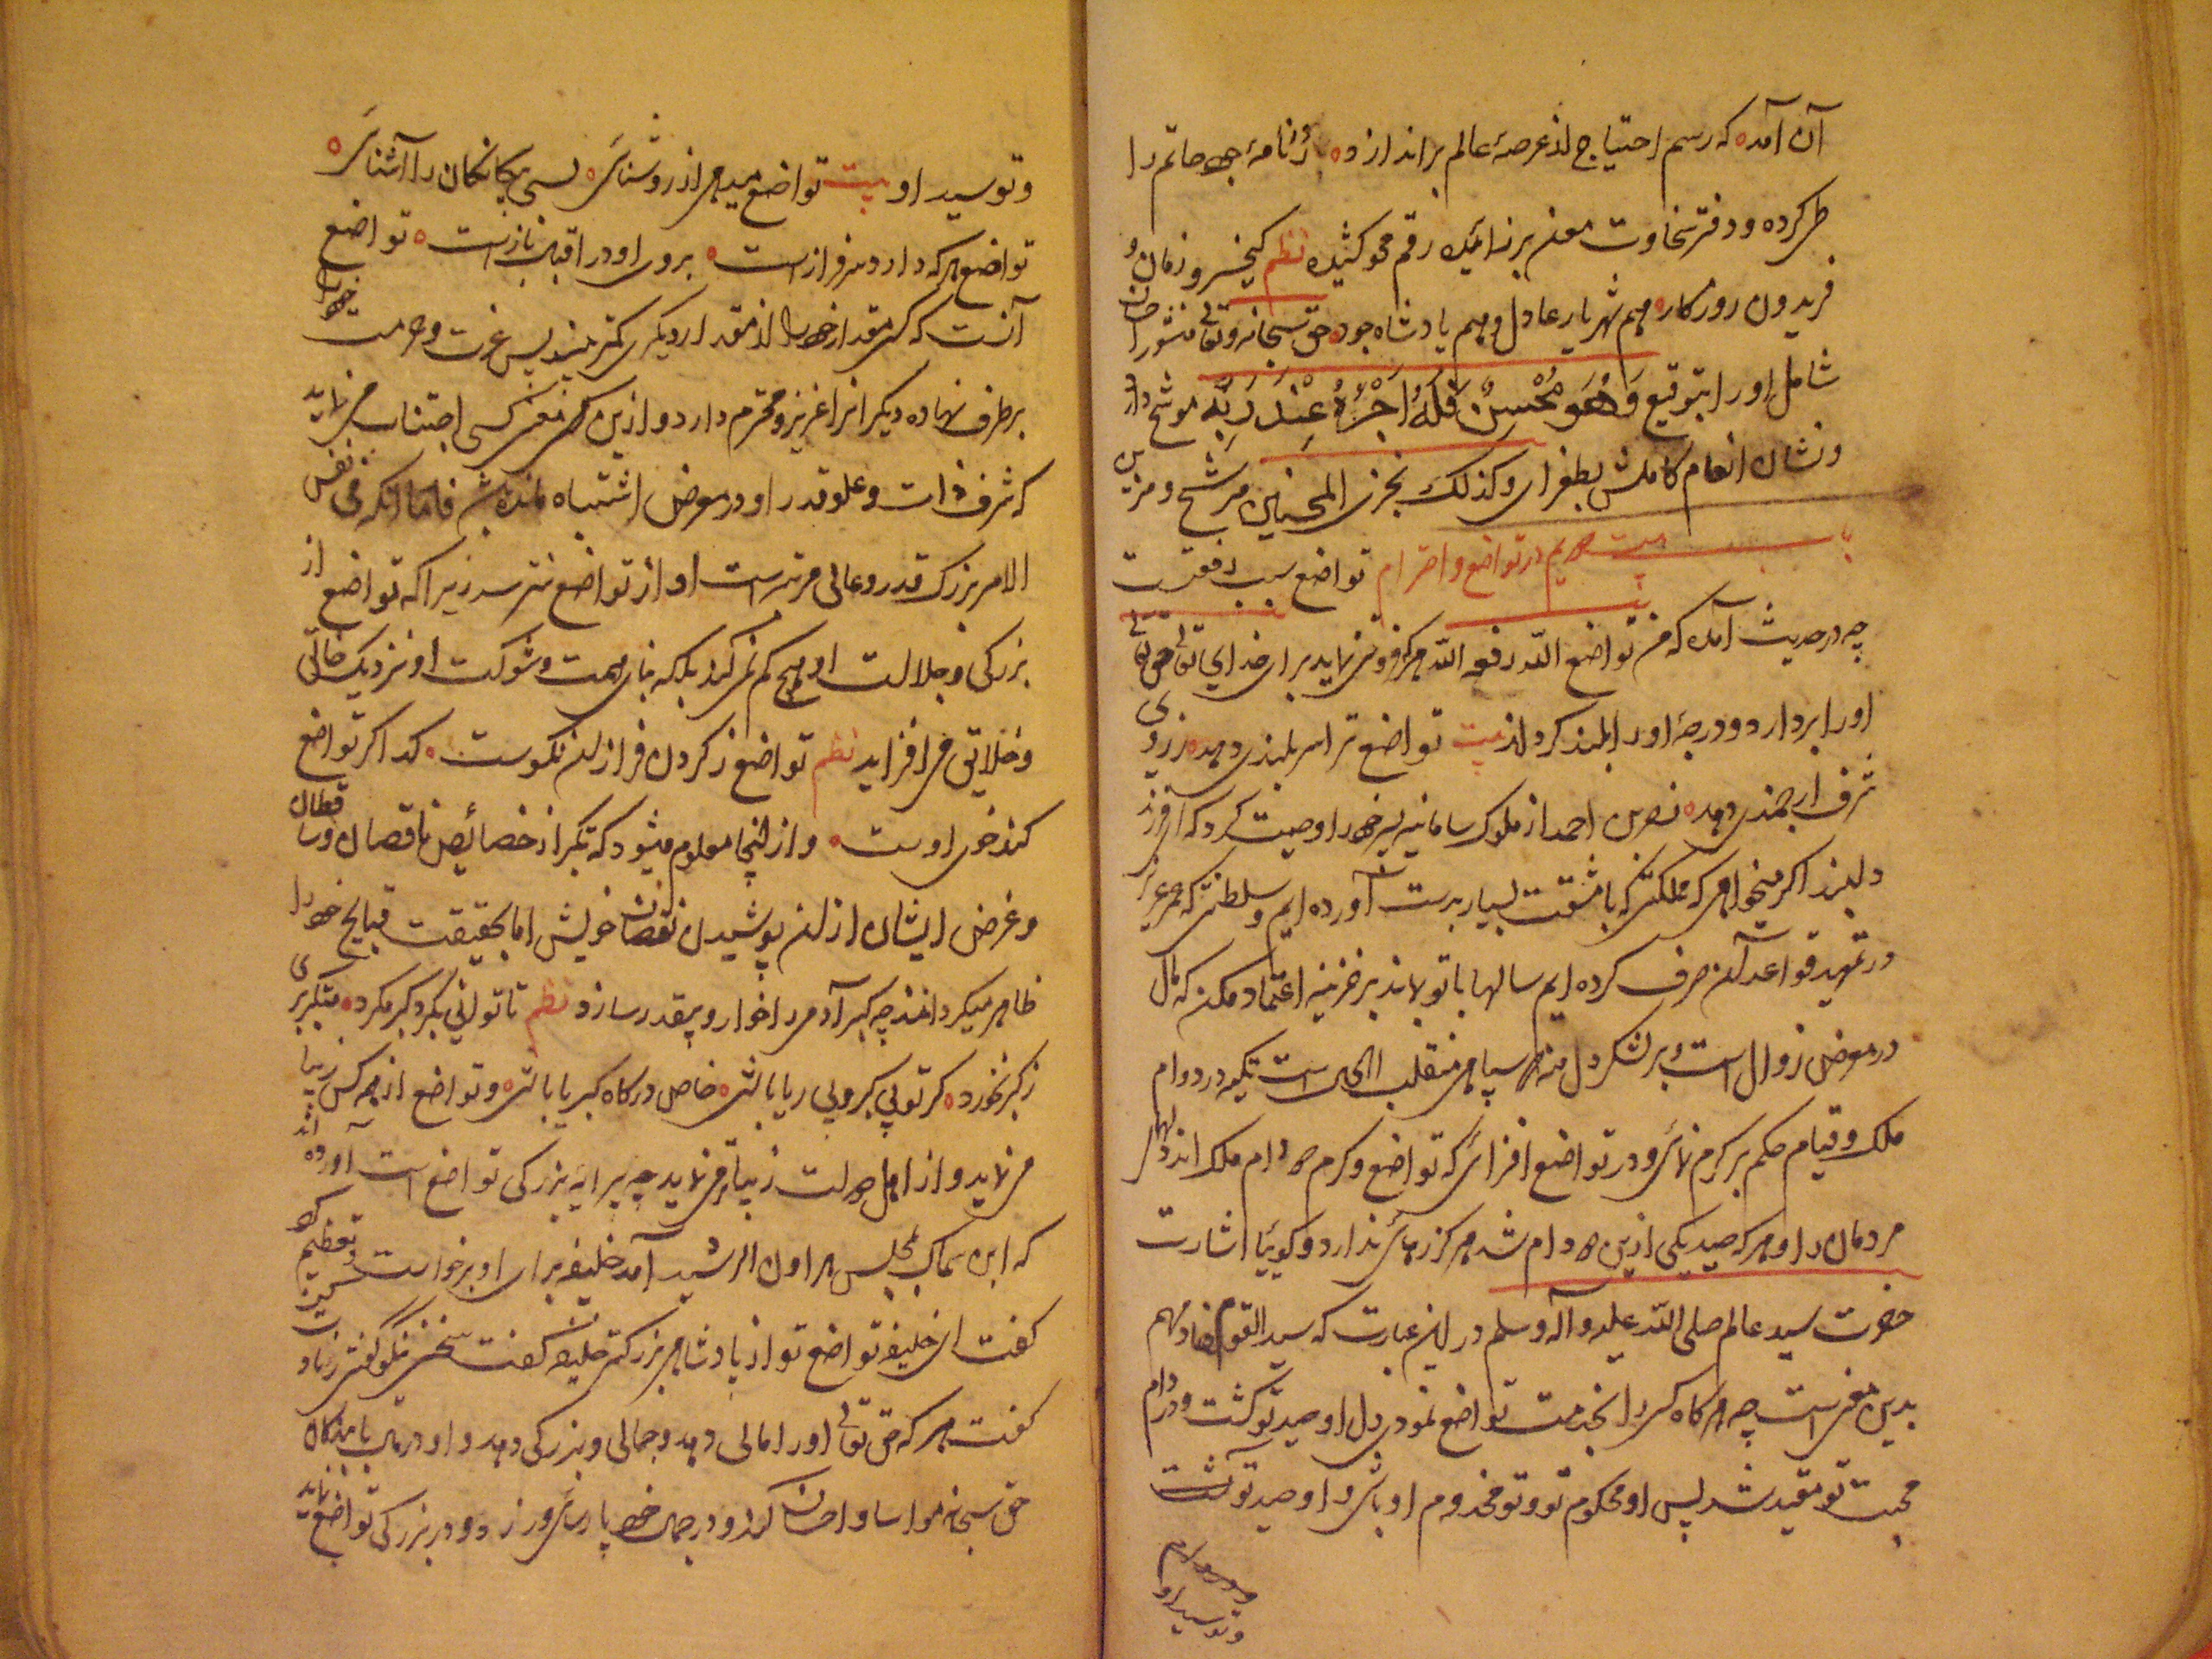 آن آمده که رسم احتیاج از عرصهٔ عالم براندازد نامهٔ جود حاتم را
طی کرده و دفتر سخاوت معن بن زائده رقم محو کشیده نظم کیخسرو زمان و
فریدون روزکار هم شهریار عادل و هم پادشاه جود حق سبحانه وتعالی منشور احسان
شامل او را بتوقیع وَهُوَ مُحْسِنٌ فَلَهُ اَجْرُهُ عِنْدَ رَبِّهِ موشح دارد
ونشان انعام کاملش بطغرای وکذلک نجزی المحسنین مرشح ومزین
باب بیست ویم در تواضع و احترام تواضع سبب رفعتست
چه در حدیث آمده که من تواضع لله رفعه الله هرکه فروتنی نماید برای خدای تعالی حق تعالی
اورا بردارد و درجهٔ اورا بلند کرداند بیت تواضع ترا سربلندی دهد ز روی
شرف ارجمندی دهد نصر بن احمد از ملوک سامانیه پسر خود را وصیت کرد که ای فرزند
دلبند اکر میخواهی که مملکتی که با مشقت بسیار بدست آورده ایم و سلطنتی که عمر عزیز
در تمهید قواعد آن صرف کرده ایم سالها با تو بماند بر خزینه اعتماد مکن که مال
در معرض زوال است و بر لشکر دل منه که سپاهی منقلب الحال است تکیه در دوام
ملک و قیام حکم بر کرم نمای و در تواضع افزای که تواضع و کرم دو دام ملک اند دلهای
مردمان را و هرکه صید یکی ازین دو دام شد هرکز رهایی ندارد و کوییا اشارت
حضرت سید عالم صلی الله علیه وآله وسلم در این عبارت که سید القوم خادمهم
بدین معنی است چه هرکاه کسی را بخدمت تواضع نمودی دل او صید تو کشت و در دام
محبت تو مقید شد پس او محکوم تو و تو مخدوم او باشی و او صید تو کشت
و در دام
و تو صید او
و تو صید او بیت تواضع میدهد از روشنایی بسی بیکانکان را آشنایی
تواضع هرکه دارد سرفرازست بروی او در اقبال بازست تواضع
آنست که کسی مقدار خود را از مقدار دیکری کمتر بیند پس عزت و حرمت خود را
برطرف نهاده دیکرانرا عزیز و محترم دارد و ازین معنی کسی اجتناب می نماید
که شرف ذات و علو قدر او در معرض اشتباه مانده باشد فاما آنکه فی نفس
الامر بزرک قدر و عالی مرتبه است او از تواضع نترسد زیرا که تواضع از
بزرکی و جلالت او هیچ کم نمی کند بلکه بنای همت و شوکت او نزدیک خالق
و خلایق می افزاید نظم تواضع ز کردن فرازان نکوست کدا کر تواضع
کند خوی اوست و از اینجا معلوم میشود که تکبر از خصائص ناقصان و باطلان
و غرض ایشان از ان پوشیدن نقصان خویش اما بحقیقت قبایح خود را
ظاهر میکردانند چه کبر آدمی را خوار و بیقدر سازد نظم تا توانی بکرد کبر مکرد متکبری
ز کبر نخورد کر تو بی کبر و بی ریا باشی خاص درکاه کبریا باشی و تواضع از همه کس زیبا
می نماید و از اهل دولت زیباتر می نماید چه پیرایهٔ بزرکی تواضع است آورده اند
که ابن سماک بمجلس هارون الرشید آمد خلیفه برای او برخواست و تعظیم کرد
کفت ای خلیفه تواضع تو از پادشاهی بزرکتر خلیفه کفت سخن نیکو کفتی زیاد کن
کفت هر که حق تعالی اورا مالی دهد و جمالی و بزرکی دهد و او در مال با بندکان
حق سبحانه مواسا و احسان کند و در جمال خود پارسایی ورزد و در بزرکی تواضع نماید